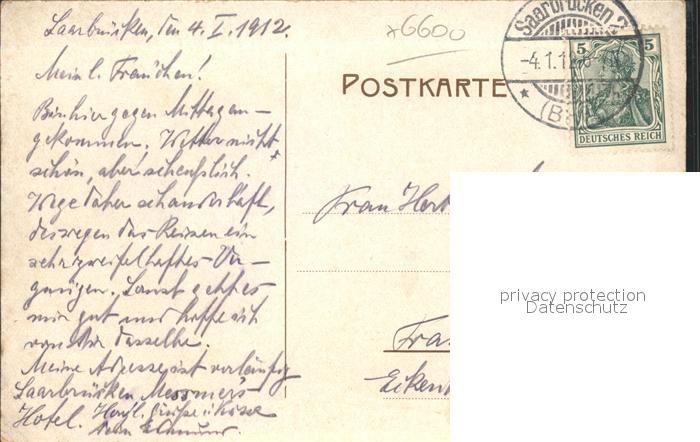 Saarbrücken, den 4. I. 1912.
Mein l. Frauchen!
Bin hier gegen Mittag an-
gekommen. Wetter nicht
schön, aber scheusslich.
Wege daher schauderhaft,
deswegen das Reisen ein
sehr zweifelhaftes Ver-
gnügen. Sonst geht es
mir gut und hoffe ich
von Dir dasselbe.
Meine Adresse ist vorläufig
Saarbrücken Messmer's
Hotel. Herzl. Grüsse u. Küsse
Dein
6600
POSTKARTE
Saarbrücken 2
-4.1.12
5 5
DEUTSCHES REICH
Frau
privacy protection
Datenschutz